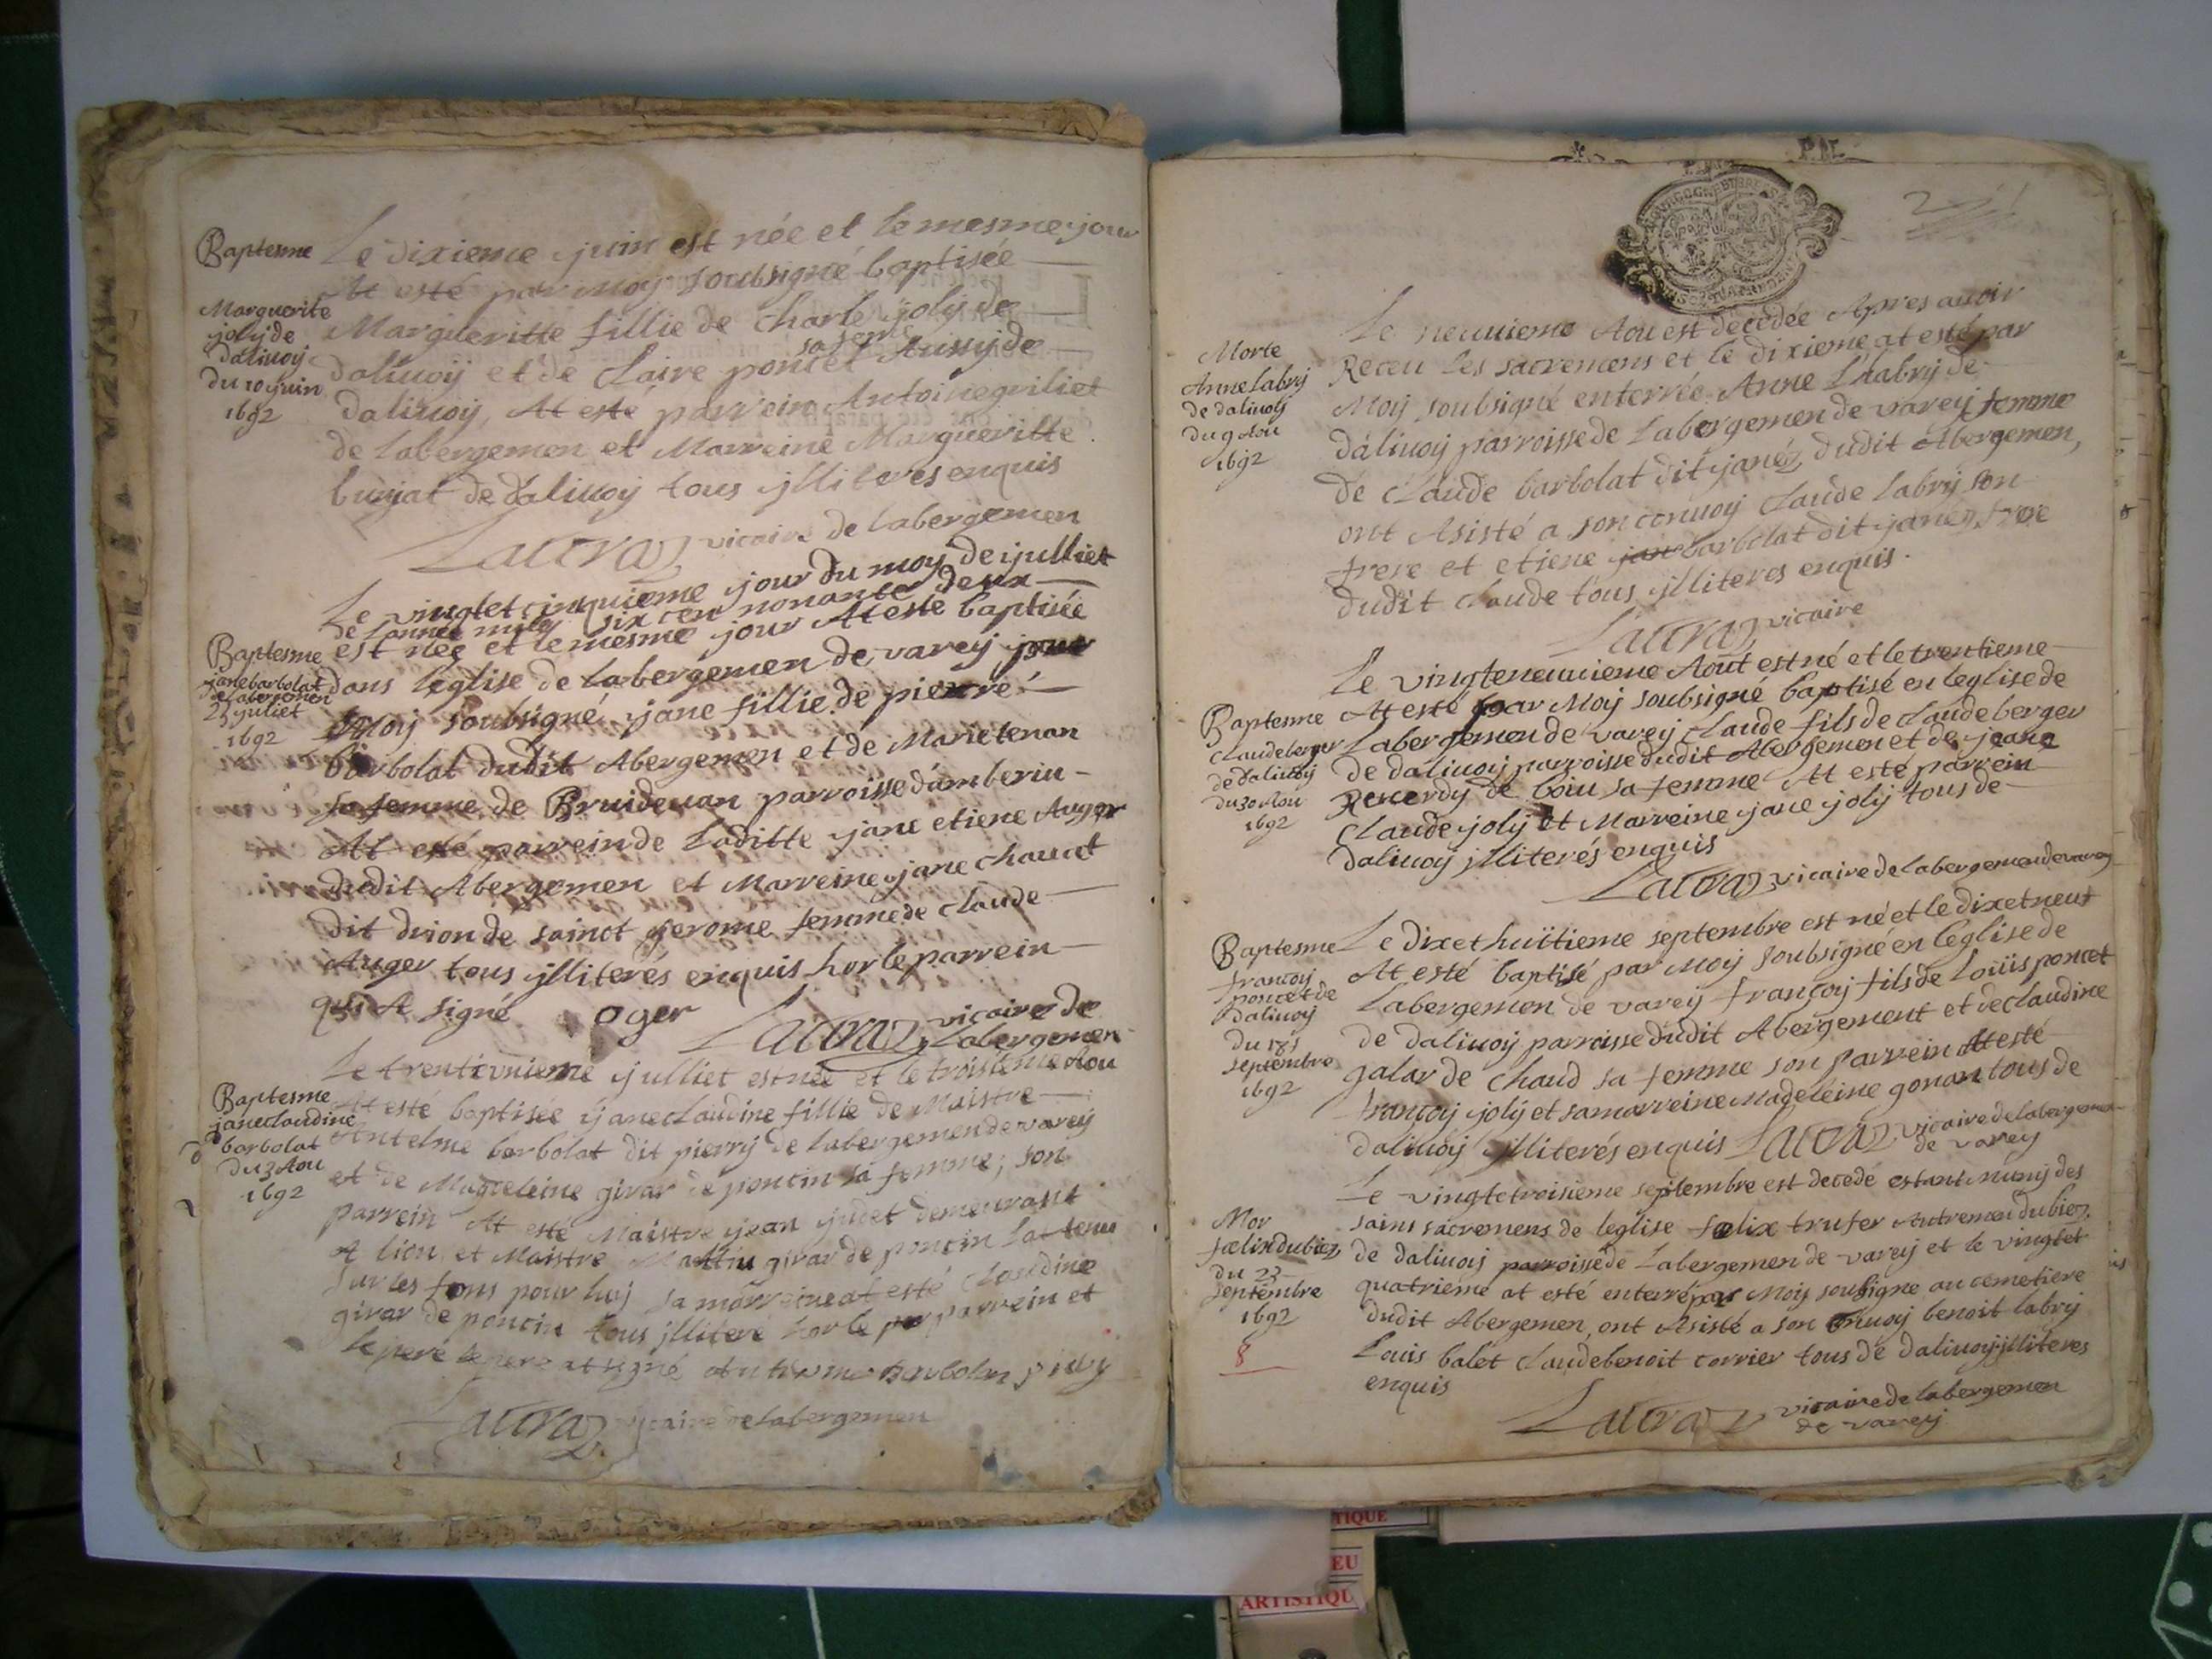 Baptesme
Marguerite
joly de
dalivoy
du 10 juin
1692
Le dixieme juin est née et le mesme jour
At esté par Moy soubsigné baptisée
Margueritte fillie de Charle joly de
sa feme
dalivoy et de Claire poncet Aussy de
dalivoy, At esté parrein Antoine griliet
de labergemen et Marreine Margueritte
bujat de dalivoy tous jlliteres enquis
vicaire de labergemen
Le vingtet cinquieme jour du moys de julliet
de lannee mile six cen nonante deux
Baptesme
jane barbolat
de labergemen
25 juliet
1692
est née et le mesme jour At esté baptisée
dans leglise de labergemen de varey par
Moy soubsigné jane fillie de pierre
barbolat dudit Abergemen et de Marie tenan
sa femme de Bruidevan parroisse damberiu
At esté parrein de laditte jane etiene Auger
dudit Abergemen et Marreine jane chavat
dit drion de sainct jerome femme de claude
Auger tous jlliterés enquis hor le parrein
qui A signé oger
vicaire de
labergemen
Baptesme
jane claudine
barbolat
du 3 Aou
1692
Le trentevnieme julliet est née et le troisieme Aou
At esté baptisée jane claudine fillie de Maistre
Antelme barbolat dit pierry de labergemen de varey
et de Magdeleine girar de poncin sa femme; son
parrein At esté Maistre jean judet demeurant
A lion et Maistre girar de poncin lat tenu
sur les fons pour luy sa marreine at esté Claudine
girar de poncin tous jlliteré hor le par parrein et
le peré le pere at signé
vicaire de labergemen
2
Morte
Anne labry
de dalivoy
du 9 Aou
1692
Le neuvieme Aou est decedée Apres avoir
Receu les sacremens et le dixieme at esté par
Moy soubsigné enterrée Anne Labry de
dalivoy parroisse de Labergemen de varey femme
de Claude barbolat dit janez dudit Abergemen,
ont Asisté a son convoy Claude labry son
frere et etiene jan barbolat dit janez frere
dudit Claude tous jlliteres enquis.
vicaire
Baptesme
Claude berger
de dalivoy
du 30 Aou
1692
Le vingteneuvieme Aout est né et le trentieme
At esté par Moy soubsigné baptisé en leglise de
labergemen de varey Claude fils de Claude berger
de dalivoy parroisse dudit Abergemen et de jeane
Reverdy de boiu sa femme At esté parrein
Claude joly et Marreine jane joly tous de
dalivoy jlliterés enquis
vicaire de labergemen de varey
Baptesme
françoy
poncet de
dalivoy
du 18
septembre
1692
Le dixet huitieme septembre est né et le dixetneuf
At esté baptisé par Moy soubsigné en léglise de
Labergemen de varey françoy fils de Loüis poncet
de dalivoy parroisse dudit Abergement et de claudine
galar de Chaud sa femme son parrein At esté
françoy joly et sa marreine Madeleine gonan tous de
dalivoy jlliterés enquis vicaire de labergemen
de varey
Mor
fælix dubiez
du 23
septembre
1692
Le vingtetroisieme septembre est decedé estant muny des
sains sacremens de leglise fælix trufer Autremen dubiez
de dalivoy parroisse de Labergemen de varey et le vingtet
quatrieme at esté enterré par Moy soubsigne au cemetiere
dudit Abergemen, ont Asisté a son convoy benoit labry
Louis balet Claude benoit corrier tous de dalivoy jlliteres
enquis
vicaire de labergemen
de varey
TIQUE
EU
ARTISTIQU